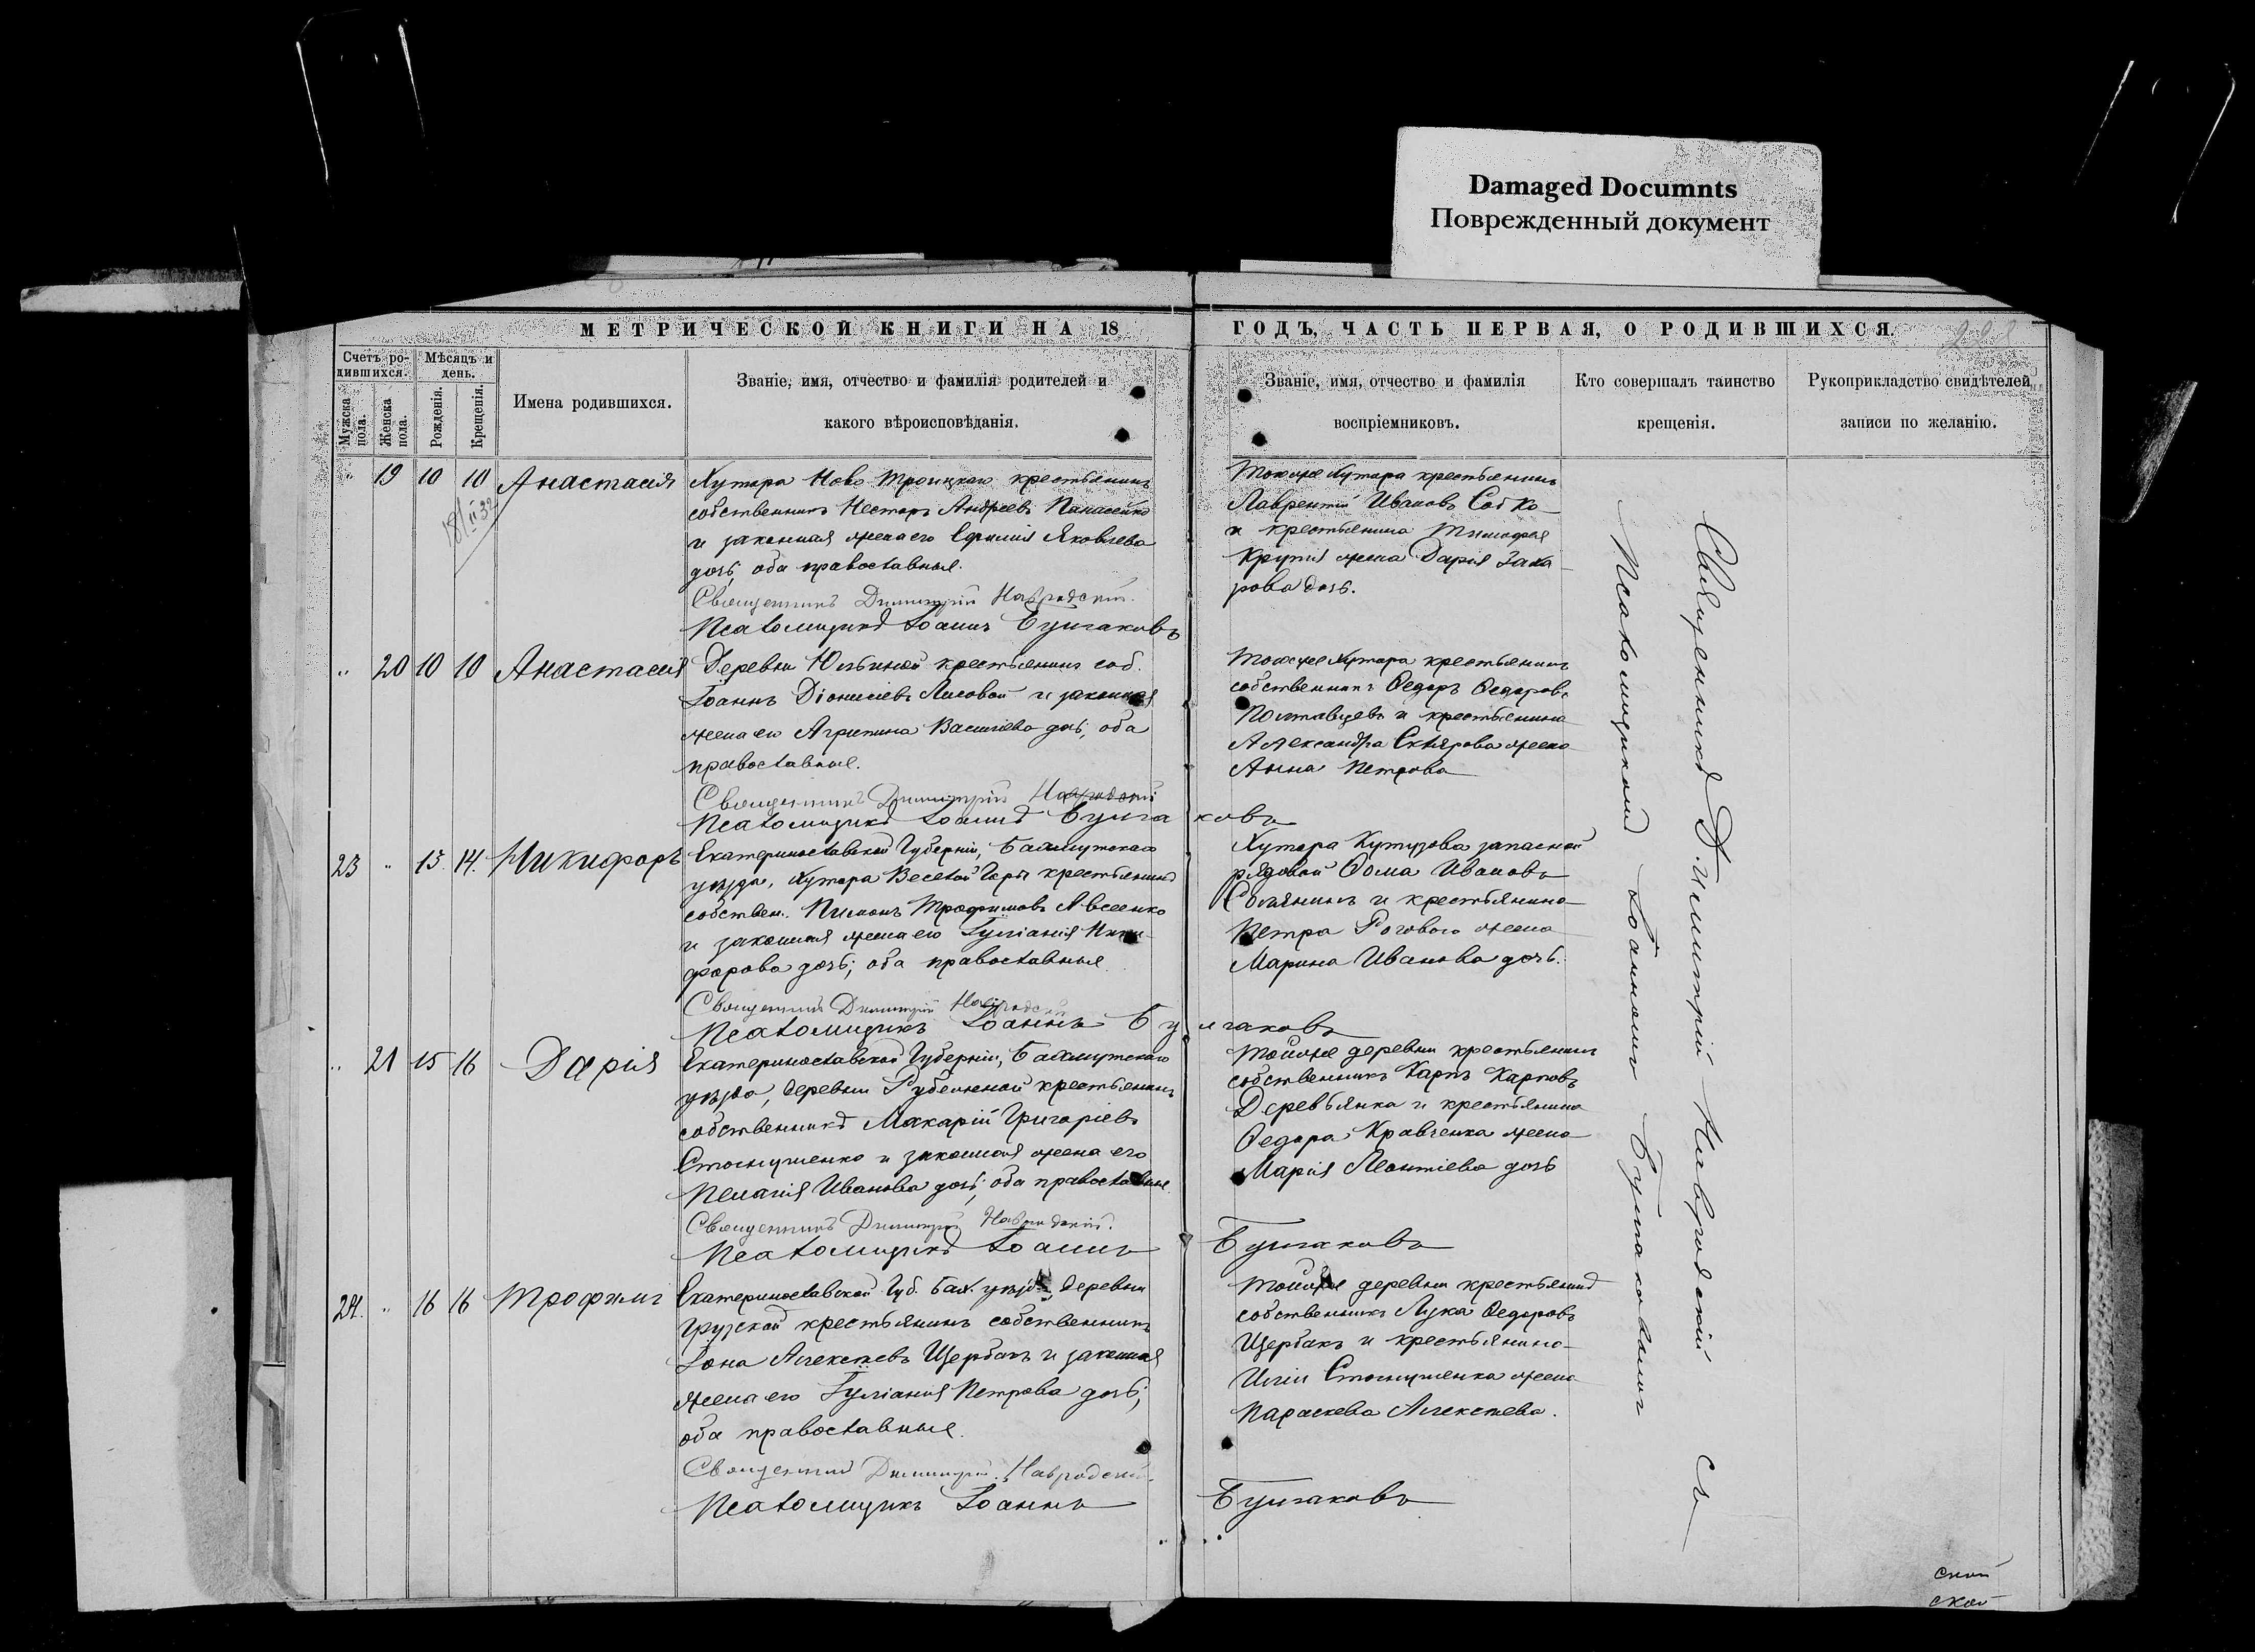 Damaged Documnts
Поврежденный документ
МЕТРИЧЕСКОЙ КНИГИ НА 18
ГОДЪ, ЧАСТЬ ПЕРВАЯ, О РОДИВШИХСЯ.
Счетъ ро-
дившихся.
Мужска
пола.
Женска
пола.
Мѣсяцъ и
день.
Рожденія.
Крещенія.
Имена родившихся.
Званіе, имя, отчество и фамилія родителей и
какого вѣроисповѣданія.
Званіе, имя, отчество и фамилія
воспріемниковъ.
Кто совершалъ таинство
крещенія.
Рукоприкладство свидѣтелей
записи по желанію.
" 19 10 10 Анастасія
Хутора Ново Троицкаго крестьянинъ
собственникъ Несторъ Андреевъ Панасенко
и законная жена его Ефимія Яковлева
дочь, оба православныя.
Священникъ Димитрій Навродскій.
Псаломщикъ Іоаннъ Булгаковъ
Тогоже Хутора крестьянинъ
Лаврентій Ивановъ Собко
и крестьянина Тимофея
Крутія жена Дарія Заха
рова дочь.
" 20 10 10 Анастасія
Деревни Юльиной крестьянинъ соб.
Іоаннъ Діонисіевъ Лисовой и законная
жена его Агрипина Васильева дочь, оба
православные.
Священникъ Димитрій Навродскій
Псаломщикъ Іоаннъ Булгаковъ
Тогоже Хутора крестьянинъ
собственникъ Федоръ Федоровъ
Полтавцевъ и крестьянина
Александра Склярова жена
Анна Петрова
23 " 13 14. Никифоръ
Екатеринославской Губерніи, Бахмутскаго
уѣзда, Хутора Веселой Горы крестьянинъ
собствен. Пименъ Трофимовъ Авсеенко
и законная жена его Іуліанія Ники
форова дочь; оба православныя
Священникъ Димитрій Навродскій
Псаломщикъ Іоаннъ Булгаковъ
Хутора Кутузова запасной
рядовой Фома Ивановъ
и крестьянина
Петра Рогового жена
Марина Иванова дочь.
" 21 15 16 Дарія
Екатеринославской Губерніи, Бахмутскаго
уѣзда, деревни Рубежной крестьянинъ
собственникъ Макарій Григоріевъ
и законная жена его
Пелагія Иванова дочь; оба православные
Священникъ Димитрій Навродскій.
Псаломщикъ Іоаннъ Булгаковъ
Тойже деревни крестьянинъ
собственникъ Карпъ Карповъ
Деревьянка и крестьянина
Федора Кравченка жена
Марія Леонтіева дочь
24. " 16 16 Трофимъ
Екатеринославской Губ. Бах. уѣзда, деревни
Грузской крестьянинъ собственникъ
Іона Алексѣевъ Щербакъ и законная
жена его Іуліанія Петрова дочь;
оба православныя.
Священникъ Димитрій Навродскій.
Псаломщикъ Іоаннъ Булгаковъ
Тойже деревни крестьянинъ
собственникъ Лука Федоровъ
Щербакъ и крестьянина
Иліи жена
Параскева Алексѣева.
Священникъ Димитрій Навродскій съ
Псаломщикомъ Іоанномъ Булгаковымъ
ской
ской